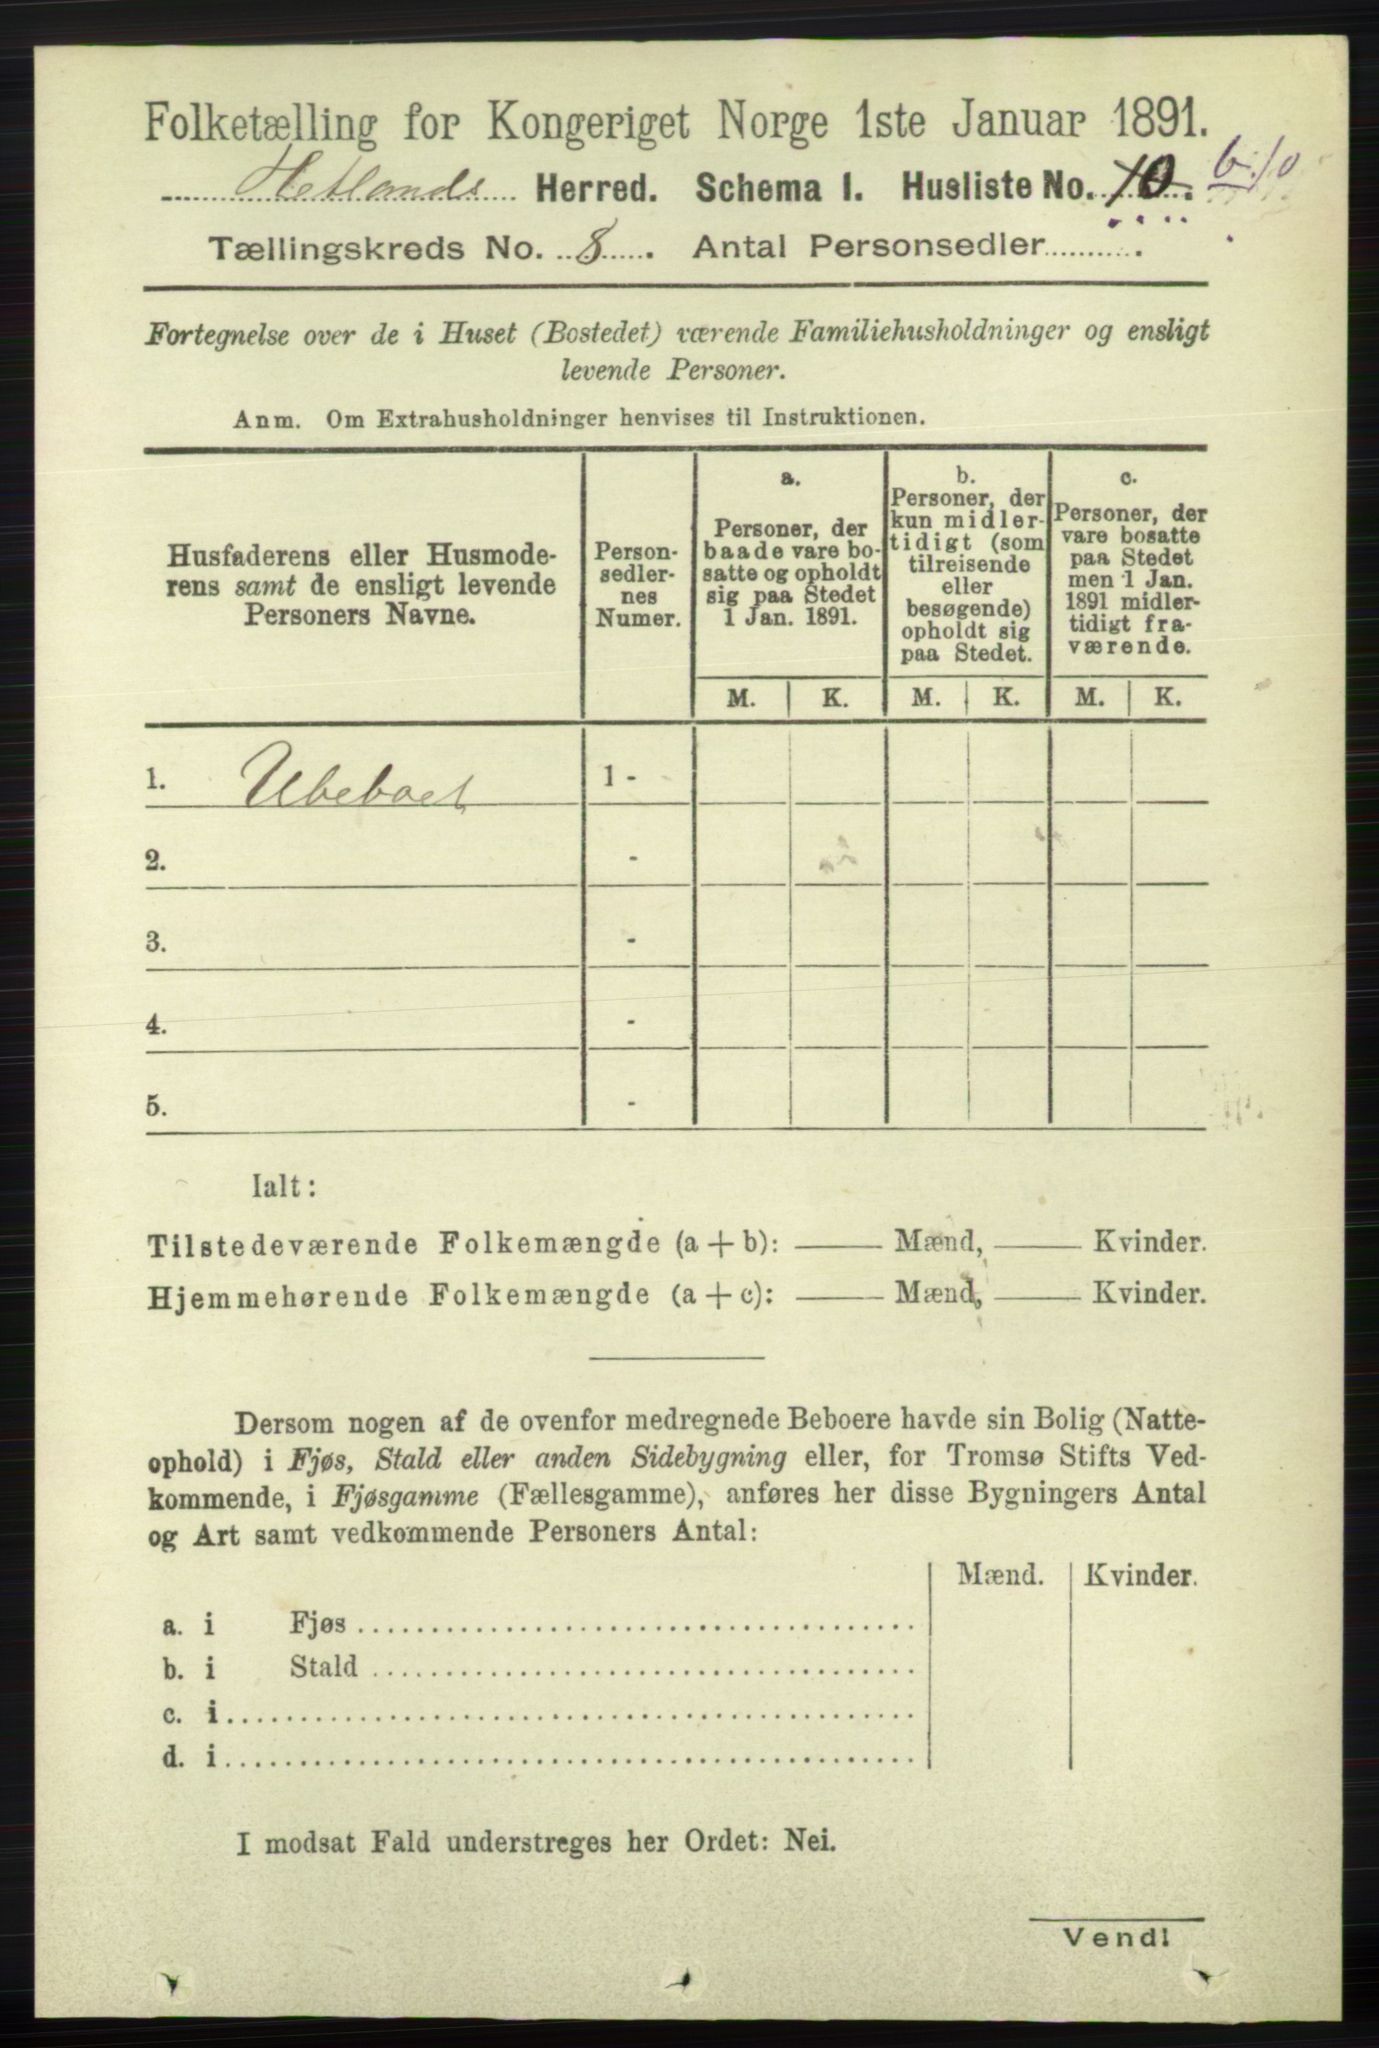 Folketælling for Kongeriget Norge 1ste Januar 1891.
Hetlands Herred. Schema I. Husliste No. 10.
Tællingskreds No. 8. Antal Personsedler..........
Fortegnelse over de i Huset (Bostedet) værende Familiehusholdninger og ensligt
levende Personer.
Anm. Om Extrahusholdninger henvises til Instruktionen.
Husfaderens eller Husmode-
rens samt de ensligt levende
Personers Navne.
Person-
sedler-
nes
Numer.
a.
Personer, der
baade vare bo-
satte og opholdt
sig paa Stedet
1 Jan. 1891.
b.
Personer, der
kun midler-
tidigt (som
tilreisende
eller
besøgende)
opholdt sig
paa Stedet.
c.
Personer, der
vare bosatte
paa Stedet
men 1 Jan.
1891 midler-
tidigt fra-
værende.
M. K. M. K. M. K.
1. Ubeboet 1 -
2. -
3. -
4. -
5. -
Ialt:
Tilstedeværende Folkemængde (a + b): —— Mænd, —— Kvinder.
Hjemmehørende Folkemængde (a + c): —— Mænd, —— Kvinder.
Dersom nogen af de ovenfor medregnede Beboere havde sin Bolig (Natte-
ophold) i Fjøs, Stald eller anden Sidebygning eller, for Tromsø Stifts Ved-
kommende, i Fjøsgamme (Fællesgamme), anføres her disse Bygningers Antal
og Art samt vedkommende Personers Antal:
Mænd. Kvinder.
a. i Fjøs
b. i Stald
c. i
d. i
I modsat Fald understreges her Ordet: Nei.
Vend!